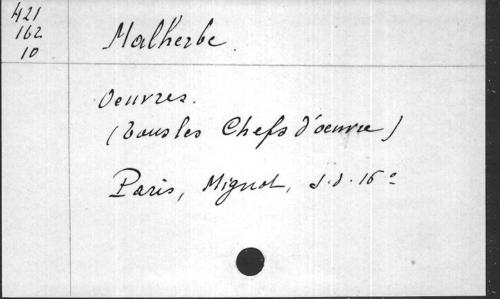 421
162
10
Malherbe.
Oeuvres.
(Tous les Chefs d'oeuvre)
Paris, Mignot, s.d. 16º